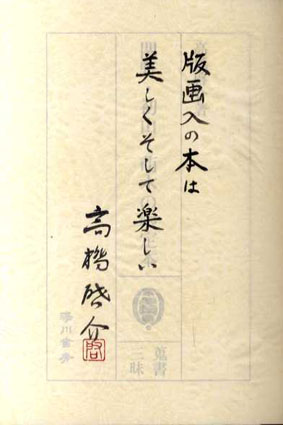 版画入の本は
美しくそして楽しい
高橋啓介
啓
蒐書
三昧
湯川書房